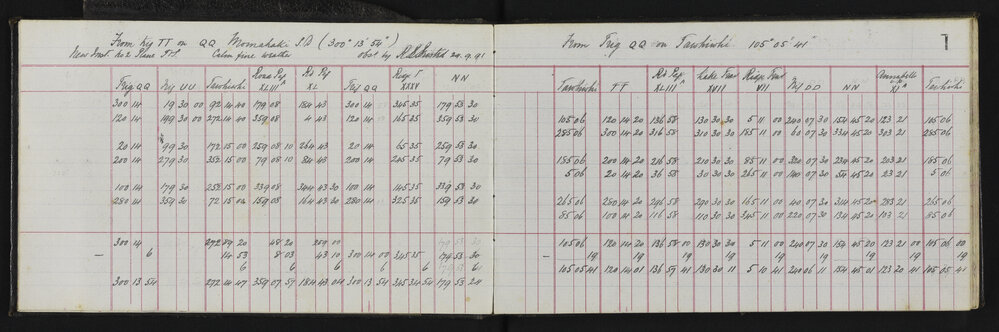 From trig TT on QQ Momahaki S.D (300° 13' 54")
New Inst. No 2 Plane
Calm fine weather
Obsd by 29.9.91
Trig QQ Trig UU Tawhiwhi Road Peg XLIII Rd Peg XL Trig QQ Ridge XXXV NN
300 14 19 30 00 92 14 40 179 08 184 43 300 14 345 35 179 53 30
120 14 199 30 00 272 14 40 359 08 4 43 120 14 165 35 359 53 30
20 14 99 30 172 15 00 259 08 10 264 43 20 14 65 35 259 53 30
200 14 279 30 352 15 00 79 08 10 84 43 200 14 245 35 79 53 30
100 14 179 30 252 15 00 339 08 344 43 30 100 14 145 35 339 53 30
280 14 359 30 72 15 00 159 08 164 43 30 280 14 325 35 159 53 30
300 14 272 89 20 48 20 259 00 79 53 30
— 6 14 53 8 03 43 10 300 14 00 345 35 179 53 30
6 6 6 6 6
300 13 54 272 14 47 359 07 57 184 43 04 300 13 54 345 34 54 179 53 24
From Trig QQ on Tawhiwhi 105° 05' 41"
1
Tawhiwhi TT Rd Peg XLIII Lake XVII Ridge VII Trig DD NN XI Tawhiwhi
105 06 120 14 20 136 58 130 30 30 5 11 00 240 07 30 154 45 20 123 21 105 06
285 06 300 14 20 316 58 310 30 30 185 11 00 60 07 30 334 45 20 303 21 285 06
185 06 200 14 20 216 58 210 30 30 85 11 00 320 07 30 234 45 20 203 21 185 06
5 06 20 14 20 36 58 30 30 30 265 11 00 140 07 30 54 45 20 23 21 5 06
265 06 280 14 20 296 58 290 30 30 165 11 00 40 07 30 314 45 20 283 21 265 06
85 06 100 14 20 116 58 110 30 30 345 11 00 220 07 30 134 45 20 103 21 85 06
105 06 120 14 20 136 58 00 130 30 30 5 11 00 240 07 30 154 45 20 123 21 00 105 06 00
— 19 19 19 19 19 19 19 19 19
105 05 41 120 14 01 136 57 41 130 30 11 5 10 41 240 06 11 154 45 01 123 20 41 105 05 41